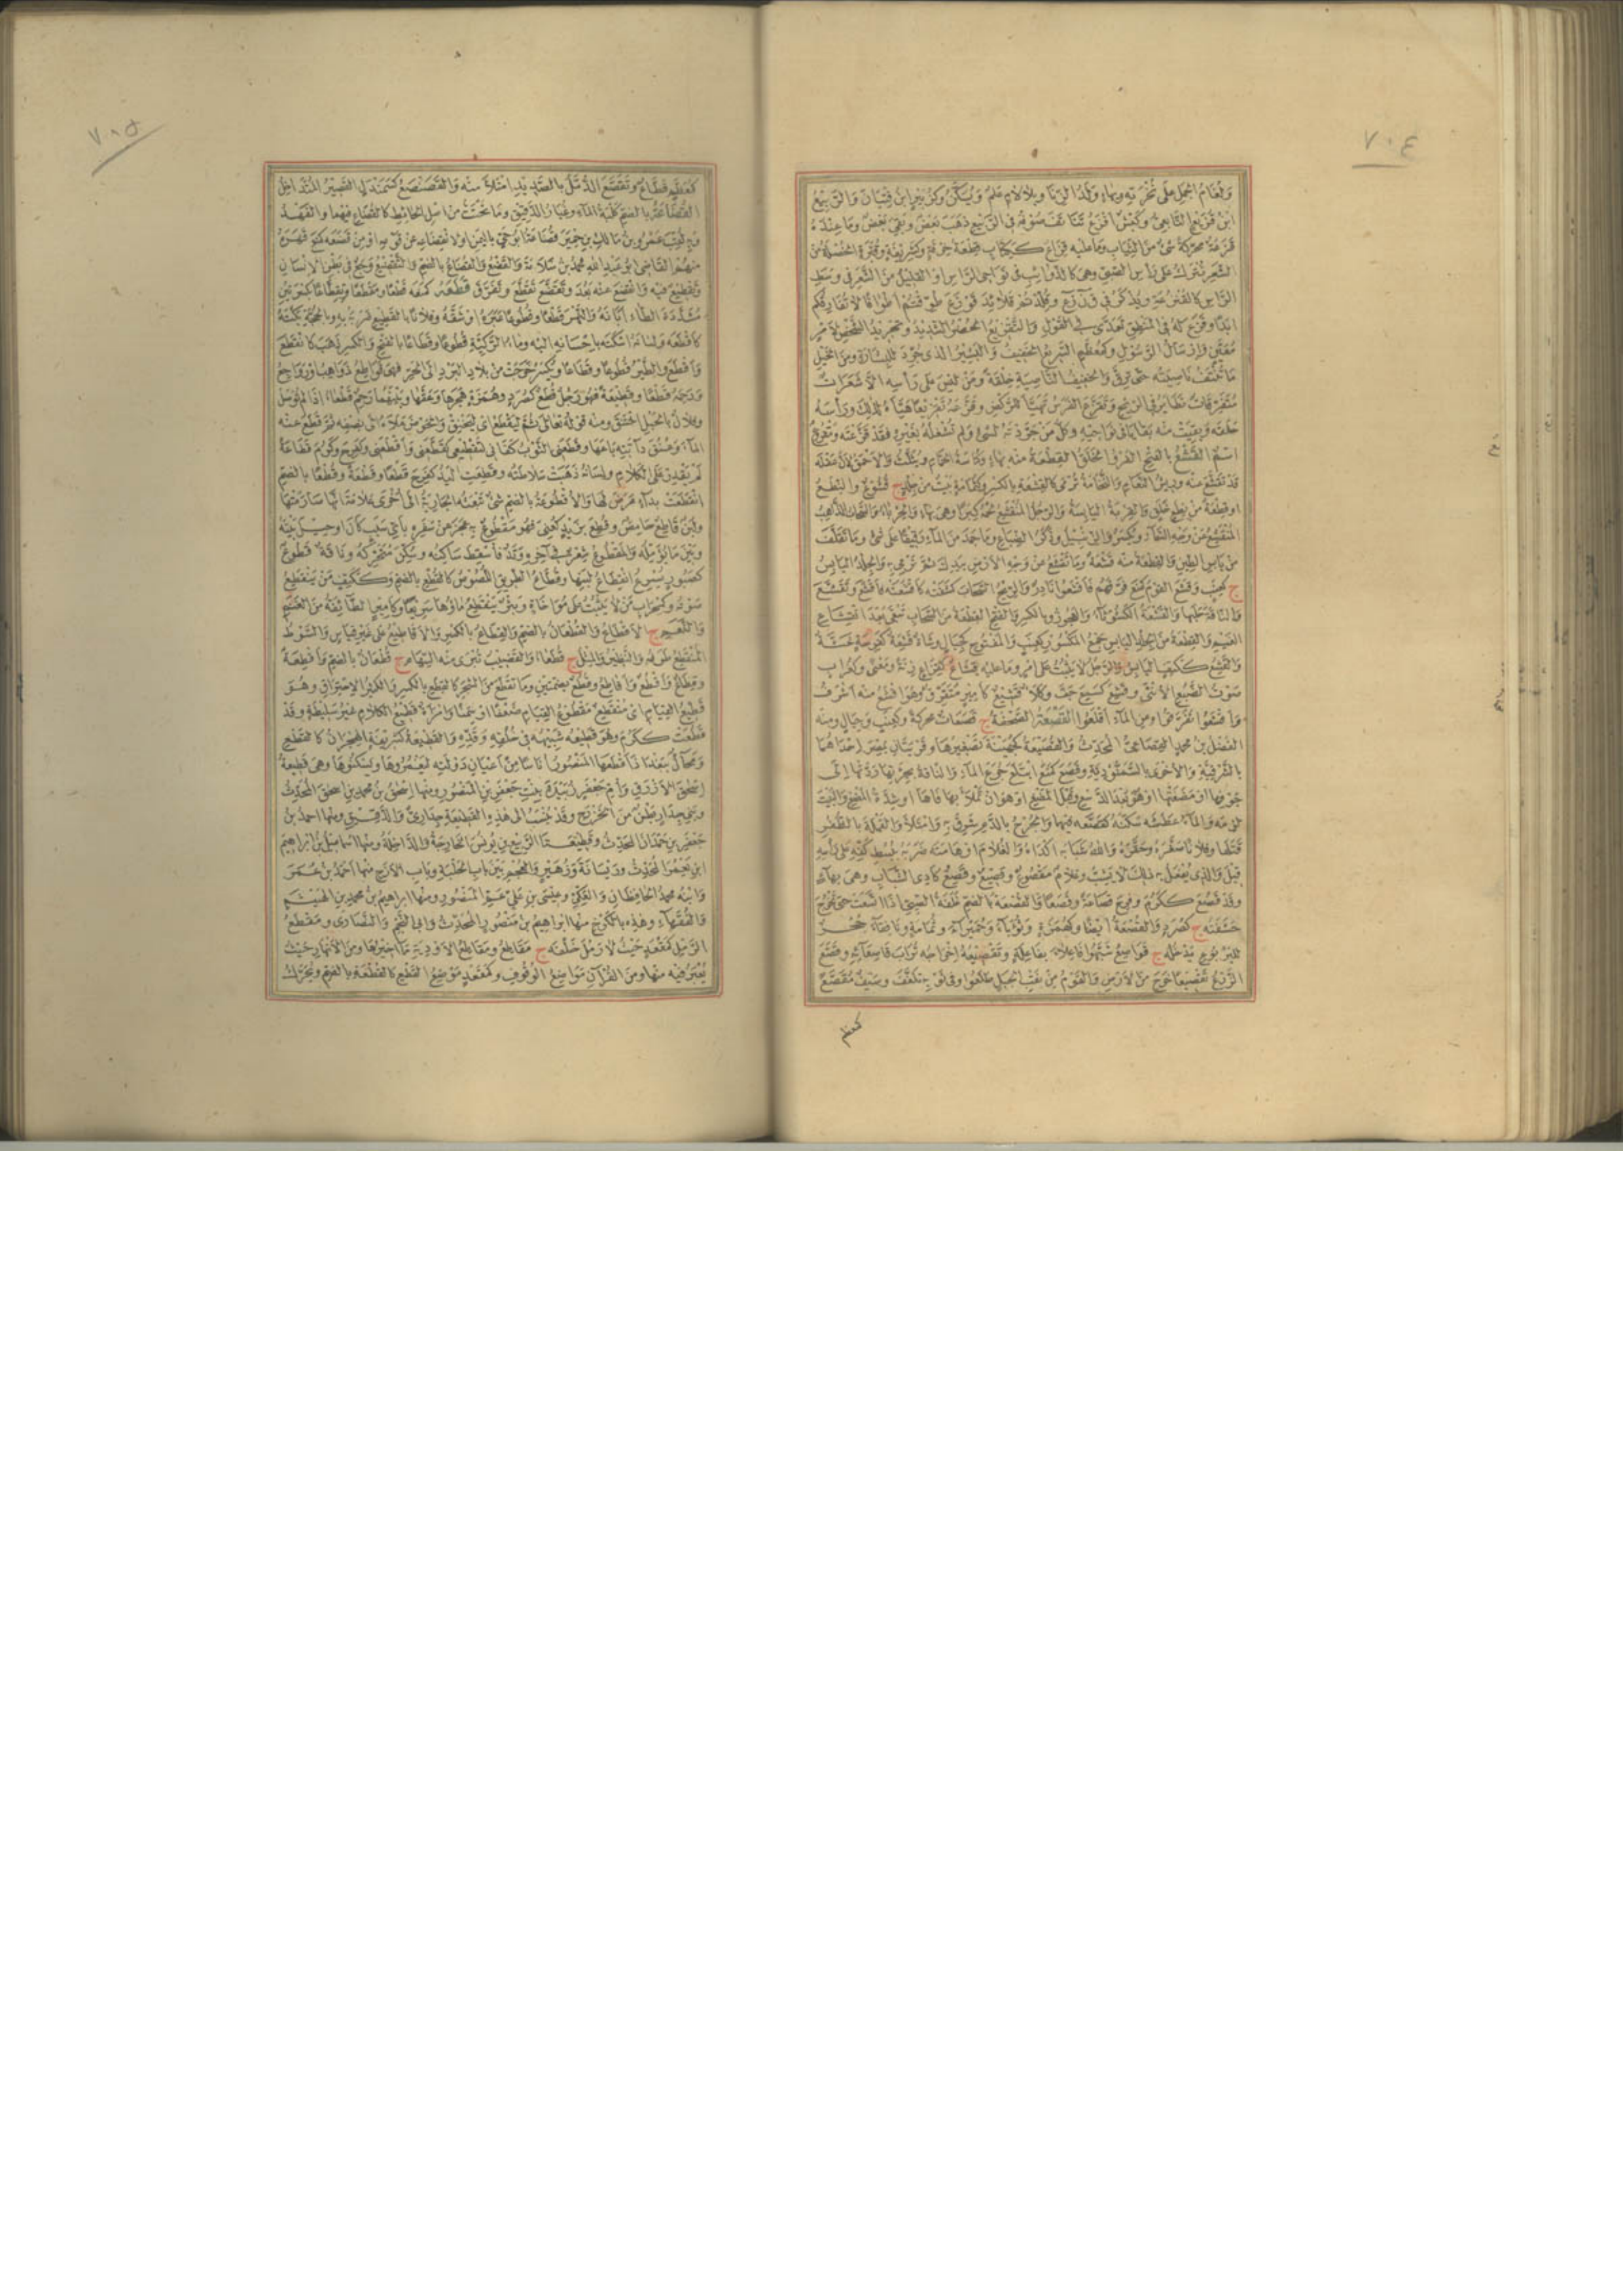 ٧٠٤
ابن قريع التابعي وكبش اقرع تناتف صوفه في الربيع ذهب بعض وبقي بعض وما عنده
قزعة محركة شئ من الثياب وما عليه قزاع ككتاب قطعة خرقة
الشعر تترك على رأس الصبي وهي كالذوائب في نواحي الرأس او القليل من الشعر في وسط
ابدا وقوزع
ما تنتف ناصيته حتى ترق والخفيف الناصية خلقة ومن ليس على رأسه الا شعرات
متفرقات تطاير في الريح وتقزع الفرس تهيأ للركض وقزعه تقزيعا هيأه لذلك ورأسه
حلقه وبقيت منه بقايا في نواحيه وكل من جردته لشئ ولم تشغله بغيره فقد قزعته ومقزع
اسم القشع بالفتح الفرو الخلق القطعة منه بهاء وكناسة الحمام ويثلث والاحمق لان عقله
قد تقشع عنه والنخامة ترمى كالقشعة بالكسر وكثمامة بيت من جلد ج قشوع والنطع
او قطعة من نطع خلق والقربة اليابسة والرجل المنقشع لحمه كبرا وهي بهاء والحرباء والسحاب الذاهب
المنقشع عن وجه السماء ويكسر
من يابس الطين والقطعة منه قشعة وما تقشع من وجه الارض بيدك ثم ترمي به والجلد اليابس
ج كعنب وقشع القوم كمنع فرقهم فاقشعوا نادر والريح السحاب كشفته كاقشعته فاقشع وتقشع
والناقة حلبها والقشعة والعجوز وبالكسر والفتح القطعة من السحاب تبقى بعد انقشاع
الغيم والقطعة من الجلد اليابس جمع المكسور كعنب والمفتوح كجبال وشاة قشعة كفرحة غثة
والقشع ككتف اليابس والرجل لا يثبت على امر وما عليه قشاع كقزاع زنة ومعنى وكغراب
صوت الضبع الانثى وقشع كسمع جف وكلأ قشيع كامير متفرق وهو اقشع منه اشرف
واقشعوا تفرقوا وعن الماء اقلعوا القصعة الصحفة ج قصعات محركة وكعنب وجبال ومنه
الفضل بن محمد القصاعي المحدث والقصيعة كجهينة تصغيرها وقريتان بمصر احداهما
بالشرقية والاخرى بالسمنودية وقصع كمنع ابتلع جرع الماء والناقة بجرتها ردتها الى
جوفها او مضغتها او هو بعد الدسع وقبل المضغ او هو ان تملأ بها فاها او شدة المضغ والبيت
لزمه والماء عطشه سكنه كقصعه فيهما والجرح بالدم شرق به وامتلأ والقملة بالظفر
قتلها وفلانا صغره وحقره والله شبابه اكداه والغلام او هامته ضربه ببسط كفه على رأسه
قيل والذي يفعل به ذلك لا يشب وغلام مقصوع وقصيع وقصع كادي الشباب وهي بهاء
وقد قصع ككرم وفرح قصاعة وقصعا والقصعة بالضم غلفة الصبي اذا اتسعت حتى تخرج
حشفته ج كصرد والقصعة ايضا وكهمزة وثوباء وحميراء وثمامة ونافقاء جحر
لليربوع يدخله ج قواصع شبهوا فاعلاء بفاعلة وتقصيعه اخراجه تراب قاصعائه وقصع
الزرع تقصيعا خرج من الارض والقوم من نقب الجبل طلعوا وفي ثوبه تلفف وسيف مقصع
كمعظم
٧٠٥
كمعظم قطاع وتقصع الدمل بالصديد امتلأ منه والقصنصع كسمندل القصير المتداخل
القضاعة بالضم كلبة الماء وغبار الدقيق وما يتحتت من اصل الحائط كالقضاع فيهما والفهد
وبه لقب عمرو بن مالك بن حمير قضاعة ابو حي باليمن او لانقضاعه عن قومه او من قضعه كمنع قهره
منهم القاضي ابو عبد الله محمد بن سلامة والقضع والقضاع بالضم والتقضيع وجع في بطن الانسان
وتقطيع فيه وانقضع عنه بعد وتقضع تقطع وتفرق قطعه كمنعه قطعا ومقطعا وتقطاعا بكسرتين
مشددة الطاء ابانه والنهر قطعا وقطوعا عبره او شقه وفلانا بالقطيع ضربه به وبالحجة بكته
كاقطعه ولسانه اسكته باحسانه اليه وماء الركية قطوعا وقطاعا بالفتح والكسر ذهب كانقطع
واقطع والطير قطوعا وقطاعا ويكسر خرجت من بلاد البرد الى الحر فهي قواطع ذواهب او رواجع
ورحمه قطعا وقطيعة فهو رجل قطع كصرد وهمزة هجرها وعقها وبينهما رحم قطعاء اذا لم توصل
وفلان بالحبل اختنق ومنه قوله تعالى ثم ليقطع اي ليختنق والحوض ملأه الى نصفه ثم قطع عنه
الماء وعنق دابته باعها وقطعني الثوب كفاني لتقطيعي كقطعني واقطعني وكفرح وكرم قطاعة
لم يقدر على الكلام ولسانه ذهبت سلاطته وقطعت اليد كفرح قطعا وقطعة وقطعا بالضم
انقطعت بداء عرض لها والاقطوعة بالضم شئ تبعثه الجارية الى اخرى علامة انها صارمتها
ولبن قاطع حامض وقطع بزيد كعني فهو مقطوع به عجز عن سفره باي سبب كان او حيل بينه
وبين ما يؤمله والمقطوع شعر في آخره وتد فاسقط ساكنه وسكن متحركه وناقة قطوع
كصبور يسرع انقطاع لبنها وقطاع الطريق اللصوص كالقطع بالضم وككتف من ينقطع
صوته وكمحراب من لا يثبت على مؤاخاة وبئر ينقطع ماؤها سريعا وكامير الطائفة من الغنم
والنعم ج الاقطاع والقطعان بالضم والقطاع بالكسر والاقاطيع على غير قياس والسوط
المنقطع طرفه والنظير والمثل ج قطعاء والقضيب تبرى منه السهام ج قطعان بالضم واقطعة
وقطاع واقطع واقاطع وقطع بضمتين وما تقطع من الشجر كالقطع بالكسر والكثير الاحتراق وهو
قطيع القيام اي منقطع مقطوع القيام ضعفا او سمنا وامرأة قطيع الكلام غير سليطة وقد
قطعت ككرم وهو قطيعه شبيهه في خلقه وقده والقطيعة كشريعة الهجران كالقطع
ومحال ببغداد اقطعها المنصور اناسا من اعيان دولته ليعمروها ويسكنوها وهي قطيعة
اسحق الازرق وام جعفر زبيدة بنت جعفر بن المنصور ومنها اسحق بن محمد بن اسحق المحدث
وبني جدار بطن من الخزرج وقد ينسب الى هذه القطيعة جداري والدقيق ومنها احمد بن
جعفر بن حمدان المحدث وقطيعتا الربيع بن يونس الخارجة والداخلة ومنها اسماعيل بن ابراهيم
ابن يعمر المحدث وريسانة وزهير والعجم بين باب الحلبة وباب الازج منها احمد بن عمر
وابنه محمد الحافظان والعكي وعيسى بن علي عم المنصور ومنها ابراهيم بن محمد بن الهيثم
والفقهاء وهذه بالكرخ منها ابراهيم بن منصور المحدث وابي النجم والنصارى ومقطع
الرمل كمقعد حيث لا رمل خلفه ج مقاطع ومقاطع الاودية مآخيرها ومن الانهار حيث
يعبر فيه منها ومن القرآن مواضع الوقوف وكمقعد موضع القطع كالقطعة بالضم ويحرك